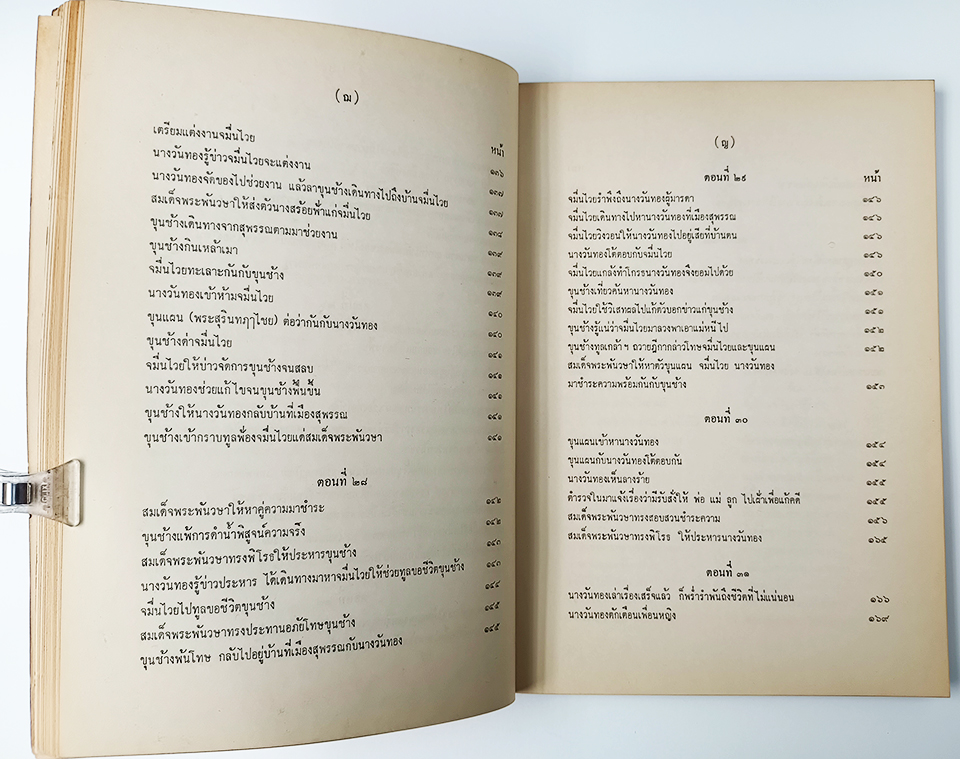 (ฌ)
หน้า
เตรียมแต่งงานจมื่นไวย ๑๓๖
นางวันทองรู้ข่าวจมื่นไวยจะแต่งงาน ๑๓๗
นางวันทองจัดของไปช่วยงาน แล้วลาขุนช้างเดินทางไปถึงบ้านจมื่นไวย ๑๓๗
สมเด็จพระพันวษาให้ส่งตัวนางสร้อยฟ้าแก่จมื่นไวย ๑๓๘
ขุนช้างเดินทางจากสุพรรณตามมาช่วยงาน ๑๓๙
ขุนช้างกินเหล้าเมา ๑๓๙
จมื่นไวยทะเลาะกันกับขุนช้าง ๑๓๙
นางวันทองเข้าห้ามจมื่นไวย ๑๔๐
ขุนแผน (พระสุรินทฦๅไชย) ต่อว่ากันกับนางวันทอง ๑๔๐
ขุนช้างด่าจมื่นไวย ๑๔๑
จมื่นไวยให้บ่าวจัดการขุนช้างจนสลบ ๑๔๑
นางวันทองช่วยแก้ไขจนขุนช้างฟื้นขึ้น ๑๔๑
ขุนช้างให้นางวันทองกลับบ้านที่เมืองสุพรรณ ๑๔๑
ขุนช้างเข้ากราบทูลฟ้องจมื่นไวยแด่สมเด็จพระพันวษา ๑๔๑
ตอนที่ ๒๘
สมเด็จพระพันวษาให้หาคู่ความมาชำระ ๑๔๒
ขุนช้างแพ้การดำน้ำพิสูจน์ความจริง ๑๔๒
สมเด็จพระพันวษาทรงพิโรธให้ประหารขุนช้าง ๑๔๓
นางวันทองรู้ข่าวประหาร ได้เดินทางมาหาจมื่นไวยให้ช่วยทูลขอชีวิตขุนช้าง ๑๔๓
จมื่นไวยไปทูลขอชีวิตขุนช้าง ๑๔๔
สมเด็จพระพันวษาทรงประทานอภัยโทษขุนช้าง ๑๔๕
ขุนช้างพ้นโทษ กลับไปอยู่บ้านที่เมืองสุพรรณกับนางวันทอง ๑๔๕
(ญ)
ตอนที่ ๒๙ หน้า
จมื่นไวยรำพึงถึงนางวันทองผู้มารดา ๑๔๖
จมื่นไวยเดินทางไปหานางวันทองที่เมืองสุพรรณ ๑๔๖
จมื่นไวยวิงวอนให้นางวันทองไปอยู่เสียที่บ้านตน ๑๔๖
นางวันทองโต้ตอบกับจมื่นไวย ๑๔๖
จมื่นไวยแกล้งทำโกรธนางวันทองจึงยอมไปด้วย ๑๕๐
ขุนช้างเที่ยวค้นหานางวันทอง ๑๕๑
จมื่นไวยใช้วิเสทผลไปแก้ตัวบอกข่าวแก่ขุนช้าง ๑๕๑
ขุนช้างรู้แน่ว่าจมื่นไวยมาลวงพาเอาแม่หนีไป ๑๕๒
ขุนช้างทูลเกล้าฯ ถวายฎีกากล่าวโทษจมื่นไวยและขุนแผน ๑๕๒
สมเด็จพระพันวษาให้หาตัวขุนแผน จมื่นไวย นางวันทอง
มาชำระความพร้อมกันกับขุนช้าง ๑๕๓
ตอนที่ ๓๐
ขุนแผนเข้าหานางวันทอง ๑๕๔
ขุนแผนกับนางวันทองโต้ตอบกัน ๑๕๔
นางวันทองเห็นลางร้าย ๑๕๕
ตำรวจในมาแจ้งเรื่องว่ามีรับสั่งให้ พ่อ แม่ ลูก ไปเฝ้าเพื่อแก้คดี ๑๕๕
สมเด็จพระพันวษาทรงสอบสวนชำระความ ๑๕๖
สมเด็จพระพันวษาทรงพิโรธ ให้ประหารนางวันทอง ๑๖๕
ตอนที่ ๓๑
นางวันทองเล่าเรื่องเสร็จแล้ว ก็พร่ำรำพันถึงชีวิตที่ไม่แน่นอน ๑๖๖
นางวันทองตักเตือนเพื่อนหญิง ๑๖๙